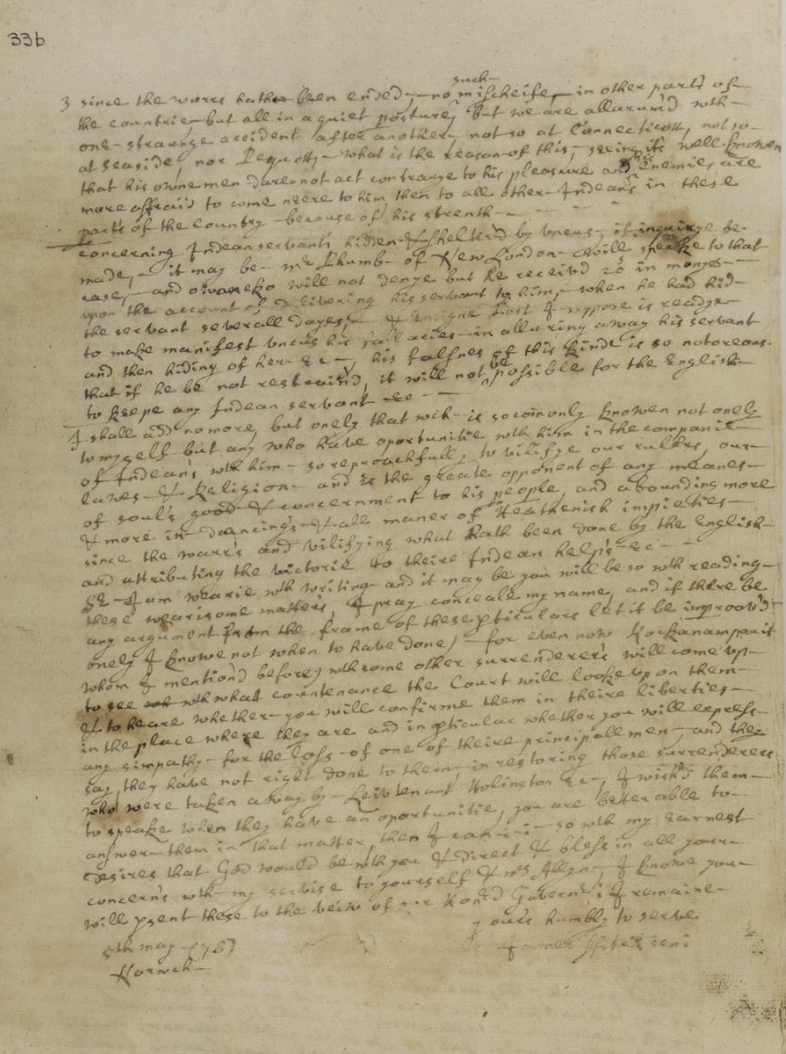 33b
such
3 since the warrs hathe been ended, no mischeife, in other parts of
the countrie, but all in a quiet posture, But we are allarum'd wth
one straunge accident after another, not so at Connecticott, not so
at seaside, nor Pequott, what is the reason of this, seeing it's well knowen
that his owne men dare not act contrarye to his pleasure and his Enemies are
more affraid to come neere to him then to all other Indean's in these
parts of the Country because of his strenth
concerning Indean servants hidden & shelter'd by Uncus, if inquirye be
made, it may be mr Plumb of New London will speake to that
case, and owaneko will not denye but he receiv'd 20s in monye
upon the account of delivering his servant to him, when he had hid
the servant severall dayes, & Ensigne I suppose is readye
to make manifest uncus his fallacies in alluring away his servant
and then hiding of her &c, his falsnes of this kinde is so notoreous
that if he be not restrain'd, it will not be possible for the English
to keepe any Indean servant &c
I shall add no more, but onely that wch is so com̄only knowen not onely
to myself but any who have oportunitie wth him in the companie
of Indean's wth him so reproachfully to vilifye our rulers, our
lawes & Religion and is the greate opponent of any meanes
of soul's good & concernment to his people, and abounding more
& more in dancing's & all maner of Heathenish impieties
since the warr's and vilifying what hath been done by the English
and attributing the victorie to theire Indean helps &c
Sr I am wearie wth writing and it may be you will be so wth reading
these wearisome matters, I pray conceale my name, and if there be
any argument from the frame of these pticulars let it be improov'd
onely I knowe not when to have done, for even now
whom I mention'd before, wth some other surrenderer's will come up
to see wth what countenance the Court will looke up on them
& to heare whether you will confirme them in theire liberties
in the place where they are and in pticular whether you will express
any simpathy for the loss of one of theire principall men, and they
say, they have not right done to them in restoring those surrenderers
who were taken away by Leivtenant Holington &c, I wish'd them
to speake when they have an oportunitie, you are better able to
answer them in that matter, then I can so wth my earnest
desires that God would be wth you & direct & bless in all your
concern's wth my servise to yourself & mrs Allyn, I knowe you
will psent these to the veiw of our Hon'd Governr I remaine
yours humbly to serve
James Fitch seni
5th may
Norwch